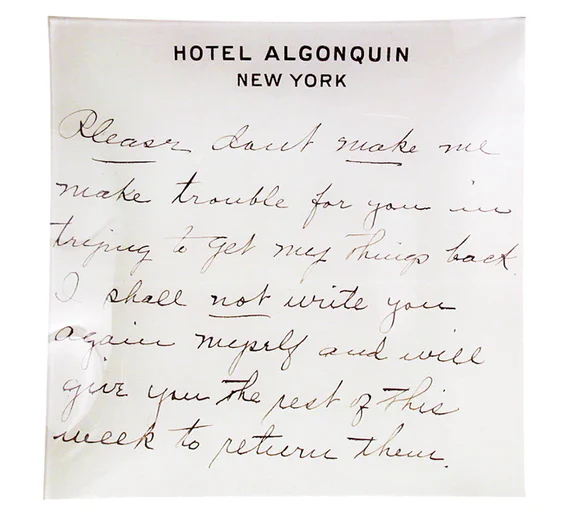 HOTEL ALGONQUIN
NEW YORK
Please dont make me
make trouble for you in
trying to get my things back.
I shall not write you
again myself and will
give you the rest of this
week to return them.